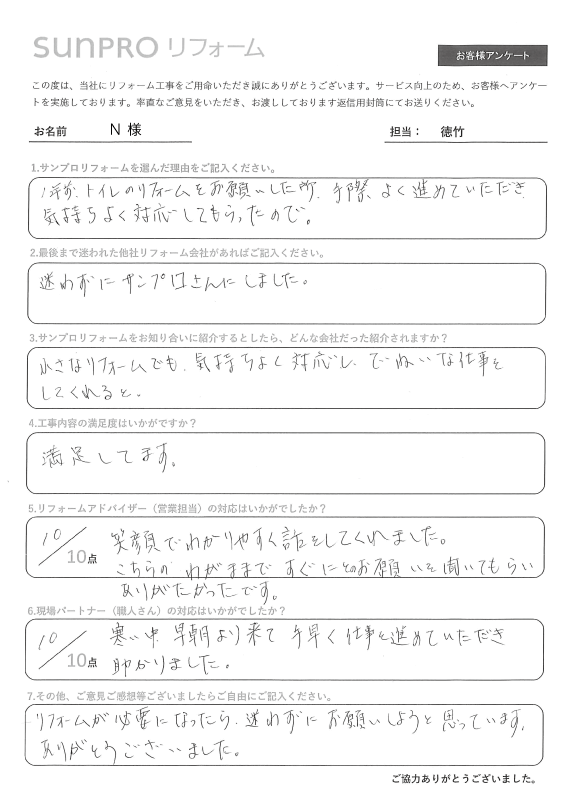 SUNPRO リフォーム
お客様アンケート
この度は、当社にリフォーム工事をご用命いただき誠にありがとうございます。サービス向上のため、お客様へアンケー
トを実施しております。率直なご意見をいただき、お渡ししております返信用封筒にてお送りください。
お名前 N 様 担当： 徳竹
1.サンプロリフォームを選んだ理由をご記入ください。
1年前、トイレのリフォームをお願いした所、手際よく進めていただき、
気持ちよく対応してもらったので。
2.最後まで迷われた他社リフォーム会社があればご記入ください。
迷わずにサンプロさんにしました。
3.サンプロリフォームをお知り合いに紹介するとしたら、どんな会社だった紹介されますか？
小さなリフォームでも、気持ちよく対応し、ていねいな仕事を
してくれると。
4.工事内容の満足度はいかがですか？
満足してます。
5.リフォームアドバイザー（営業担当）の対応はいかがでしたか？
10/10点
笑顔でわかりやすく話をしてくれました。
こちらの わがままで すぐにとのお願いを聞いてもらい
ありがたかったです。
6.現場パートナー（職人さん）の対応はいかがでしたか？
10/10点
寒い中、早朝より来て 手早く仕事を進めていただき
助かりました。
7.その他、ご意見ご感想等ございましたらご自由にご記入ください。
リフォームが必要になったら、迷わずにお願いしようと思っています。
ありがとうございました。
ご協力ありがとうございました。